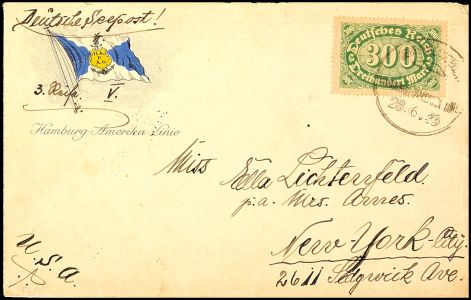 Deutsche Seepost!
Deutsches Reich
300
Dreihundert Mark
3. Reise V.
28.6.23
Hamburg-Amerika Linie
Miss Ella Lichtenfeld
p.a. Mrs. Arnes.
New-York-City.
2611 Sedgwick Ave.
U.S.A.